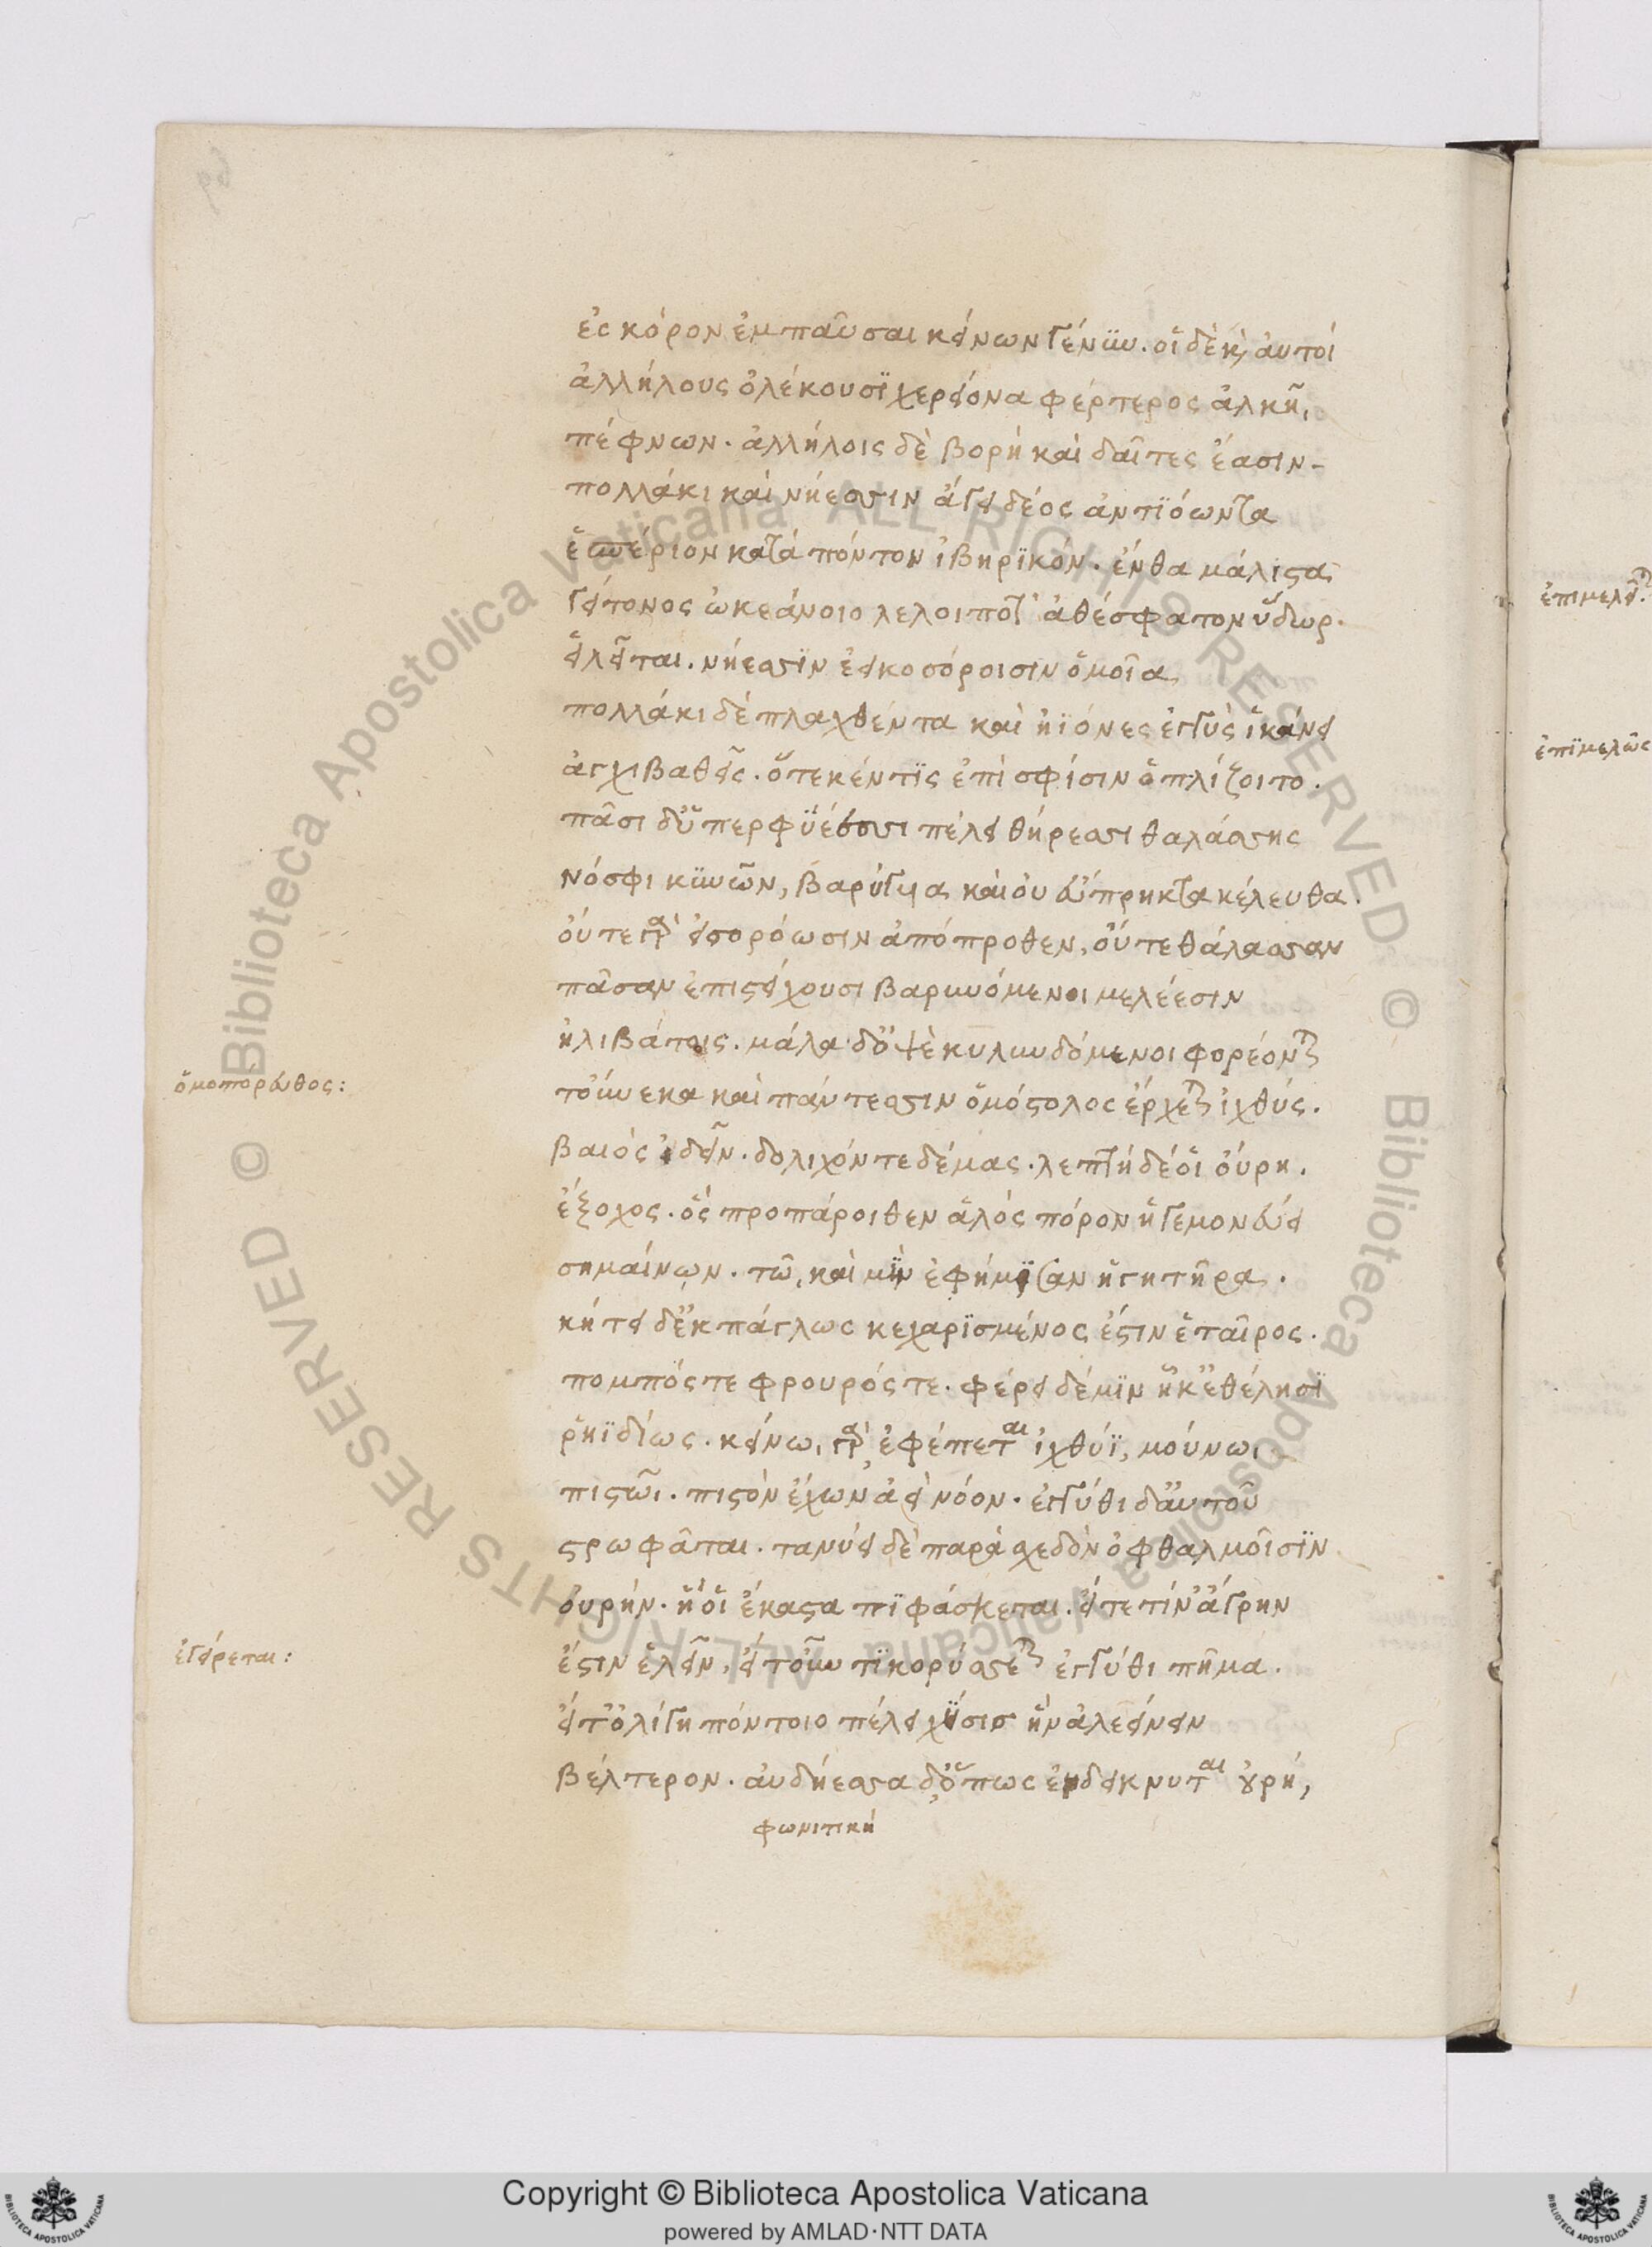 ἐς κόρον ἐμπαῦσαι κείνων γένϋν. οἵ δὲ κ(αὶ) ἀυτοί
ἀλλήλους ὀλέκουσϊ χερείονα φέρτερος ἀλκῆι
πέφνων. ἀλλήλοις δὲ βορὴ καὶ δαῖτες ἔασιν-
πολλάκι καὶ νήεσσιν ἄγει δέος ἀντϊόωντα
ἑσπέριον κατά πόντον ἰβηρϊκόν. ἔνθα μάλιστα
γείτονος ὠκεάνοιο λελοιποτ' ἀθέσφατον ὕδωρ.
εἱλεῖται. νήεσσϊν ἐεικοσόροισιν ὅμοῖα
πολλάκι δὲ πλαχθέντα καὶ ἠϊόνες ἐγγὺς ἱκάνει
ἀγχιβαθεῖς. ὅτε κέν τϊς ἐπὶ σφίσιν ὁπλίζοιτο.
πᾶσι δ' ὕπερφϋέεσσι πέλει θήρεσσι θαλάσσης
νόσφι κϋνῶν, βαρύγυια καὶ οὐκ εὔπρηκτα κέλευθα.
οὔτε γὰρ εἰσορόωσιν ἀπόπροθεν, οὔτε θάλασσαν
πᾶσαν ἐπιστείχουσι βαρυνόμενοι μελέεσιν
ἠλιβάτοις. μάλα δ' ὀψὲ κυλινδόμενοι φορέονται
ὁμοπόρευθος:
τοὔνεκα καὶ πάντεσσιν ὁμόστολος ἔρχεται ἰχθύς.
βαιὸς ἰδεῖν. δολιχόν τε δέμας. λεπτὴ δέ ὁἱ οὐρη.
ἔξοχος. ὅς προπάροιθεν ἁλὸς πόρον ἡγεμονεύει
σημαίνων. τῶ, καὶ μϊν ἐφήμιξαν ἡγητῆρα.
κήτει δ' ἔκπάγλως κεχαρϊσμένος ἐστιν ἑταῖρος.
πομπός τε φρουρός τε. φέρει δέ μϊν ἧ κ' ἐθέλησϊ
ῥηϊδίως. κείνω, γὰρ ἐφέπεται ἰχθύϊ, μούνωι
πιστῶι. πιστὸν ἔχων ἀεὶ νόον. ἐγγύθι δ' ἀυτοῦ
στρωφᾶται. τανύει δὲ παρὰ σχεδὸν ὀφθαλμοῖσϊν
οὐρήν. ἥ ὁἱ ἕκαστα πϊφάσκεται. εἴτε τίν' ἄγρην
ἐγείρεται:
ἔστιν ἑλεῖν. εἴτ' οὖν τϊ κορύσσεται ἐγγύθι πῆμα.
εἴτ' ὀλίγη πόντοιο πέλει χύσις ἣν ἀλεείνειν
βέλτερον. ἀυδήεσσα δ' ὅπως ἐνδείκνυται οὐρή,
φωνιτική
ἐπιμελεῖται.
ἐπϊμελῶς